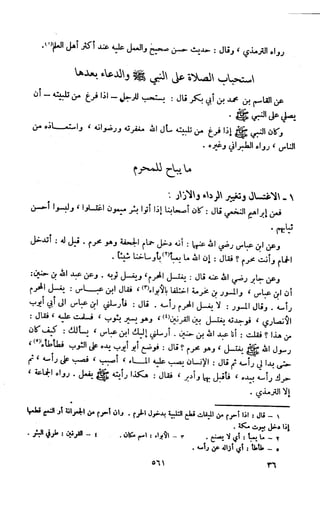 رواه الترمذي ، وقال : حديث حسن صحيح والعمل عليه عند أكثر أهل العلم(١).
استحباب الصلاة على النبي ﷺ والدعاء بعدها
عن القاسم بن محمد بن أبي بكر قال : يستحب للرجل – إذا فرغ من تلبيته – أن
يصلي على النبي ﷺ .
وكان النبي ﷺ إذا فرغ من تلبيته سأل الله مغفرته ورضوانه ، واستعاذه من
الناس ، رواه الطبراني وغيره .
ما يباح للمحرم
١ – الاغتسال وتغيير الرداء والازار :
فعن إبراهيم النخعي قال : كان أصحابنا إذا أتوا بئر ميمون اغتسلوا ، ولبسوا أحسن
ثيابهم .
وعن ابن عباس رضي الله عنهما : أنه دخل حمام الجحفة وهو محرم . قيل له : أتدخل
الحمام وأنت محرم ؟ فقال : إن الله ما يعبأ(٢) بأوساخنا شيئاً .
وعن جابر رضي الله عنه قال : يغتسل المحرم ، ويغسل ثوبه . وعن عبد الله بن حنين:
أن ابن عباس ، والمسور بن مخرمة اختلفا بالأبواء(٣) ، فقال ابن عباس : يغسل المحرم
رأسه . وقال المسور : لا يغسل المحرم رأسه . قال : فأرسلني ابن عباس الى أبي أيوب
الأنصاري ، فوجدته يغتسل بين القرنين(٤) ، وهو يستر بثوب ، فسلمت عليه ، فقال :
من هذا ؟ فقلت : أنا عبد الله بن حنين . أرسلني إليك ابن عباس ، يسألك : كيف كان
رسول الله ﷺ يغتسل ، وهو محرم ؟ قال : فوضع أبو أيوب يده على الثوب فطأطأه(٥)
حتى بدا لي رأسه ثم قال : لإنسان يصب عليه الماء ، أصبب ، فصب على رأسه ، ثم
حرك رأسه بيده ، فأقبل بها وأدبر ، فقال : هكذا رأيته ﷺ يفعل . رواه الجماعة ،
إلا الترمذي .
١ – قال : اذا أحرم من الميقات قطع التلبية بدخول الحرم . وان أحرم من الجعرانة أو التنعيم قطعها
إذا دخل بيوت مكة .
٢ – ما يعبأ : أي لا يصنع . ٣ – الأبواء : اسم مكان . ٤ – القرنين : طرفي البئر .
٥ – طأطأ : أي أزاله عن رأسه .
٥٦١ ٣٦